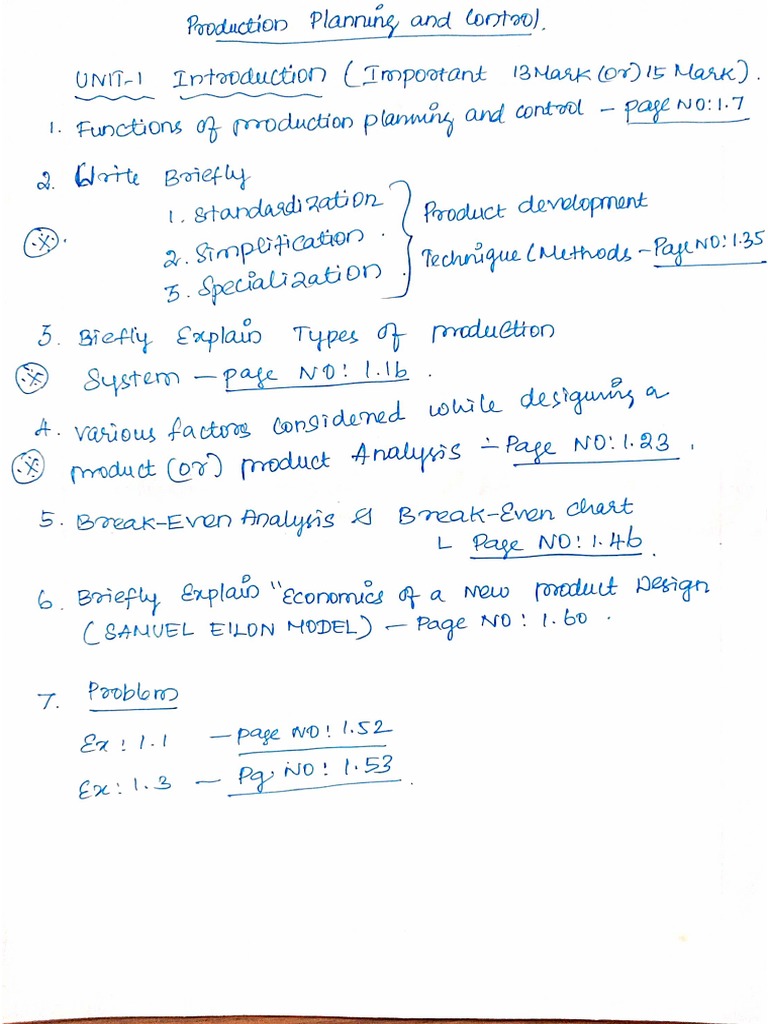 Production Planning and Control.
UNIT-1 Introduction (Important 13 Mark (or) 15 Mark).
1. Functions of production planning and control - page NO: 1.7
2. Write Briefly
1. Standardization
2. Simplification
3. Specialization
Product development
Technique (Methods - Page NO: 1.35
3. Biefly Explain Types of production
System - page NO: 1.16.
4. various factors considered while designing a
product (or) product Analysis :- Page NO: 1.23.
5. Break-Even Analysis & Break-Even chart
L Page NO: 1.46.
6. Briefly Explain "Economics of a New product Design
(SAMUEL EILON MODEL) - Page NO: 1.60.
7. Problem
Ex: 1.1 - page NO: 1.52
Ex: 1.3 - Pg. NO: 1.53.